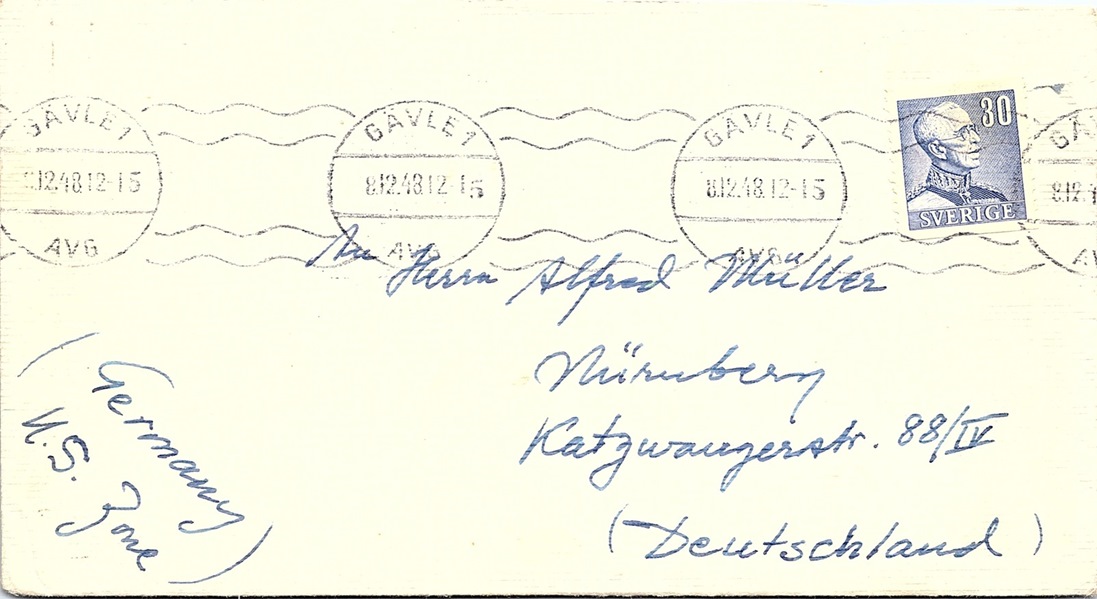 GÄVLE 1 GÄVLE 1 GÄVLE 1
8.12.48.12-15 8.12.48.12-15 8.12.48.12-15 8.12.
AVG AVG AVG
30
SVERIGE
An Herrn Alfred Müller
Nürnberg
Katzwangerstr. 88/IV
(Deutschland)
(Germany
U.S. Zone)